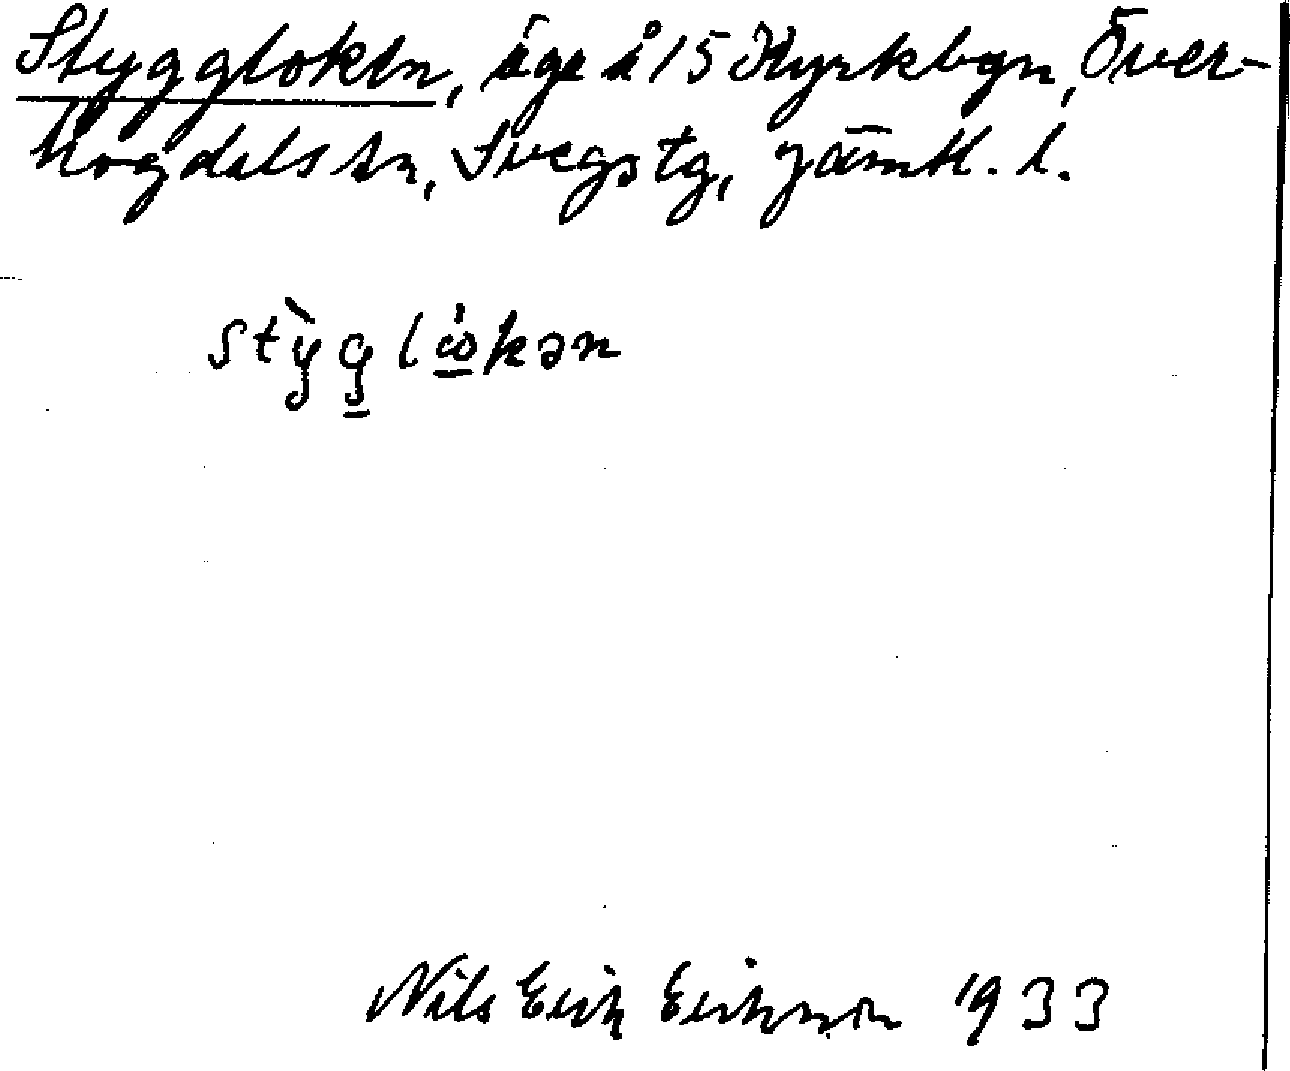 Styggloken, äga å 15 Kyrkbyn, Över-
hogdals sn, Svegs tg, Jämtl. l.
stỳglökən
Nils Erik Eriksson 1933